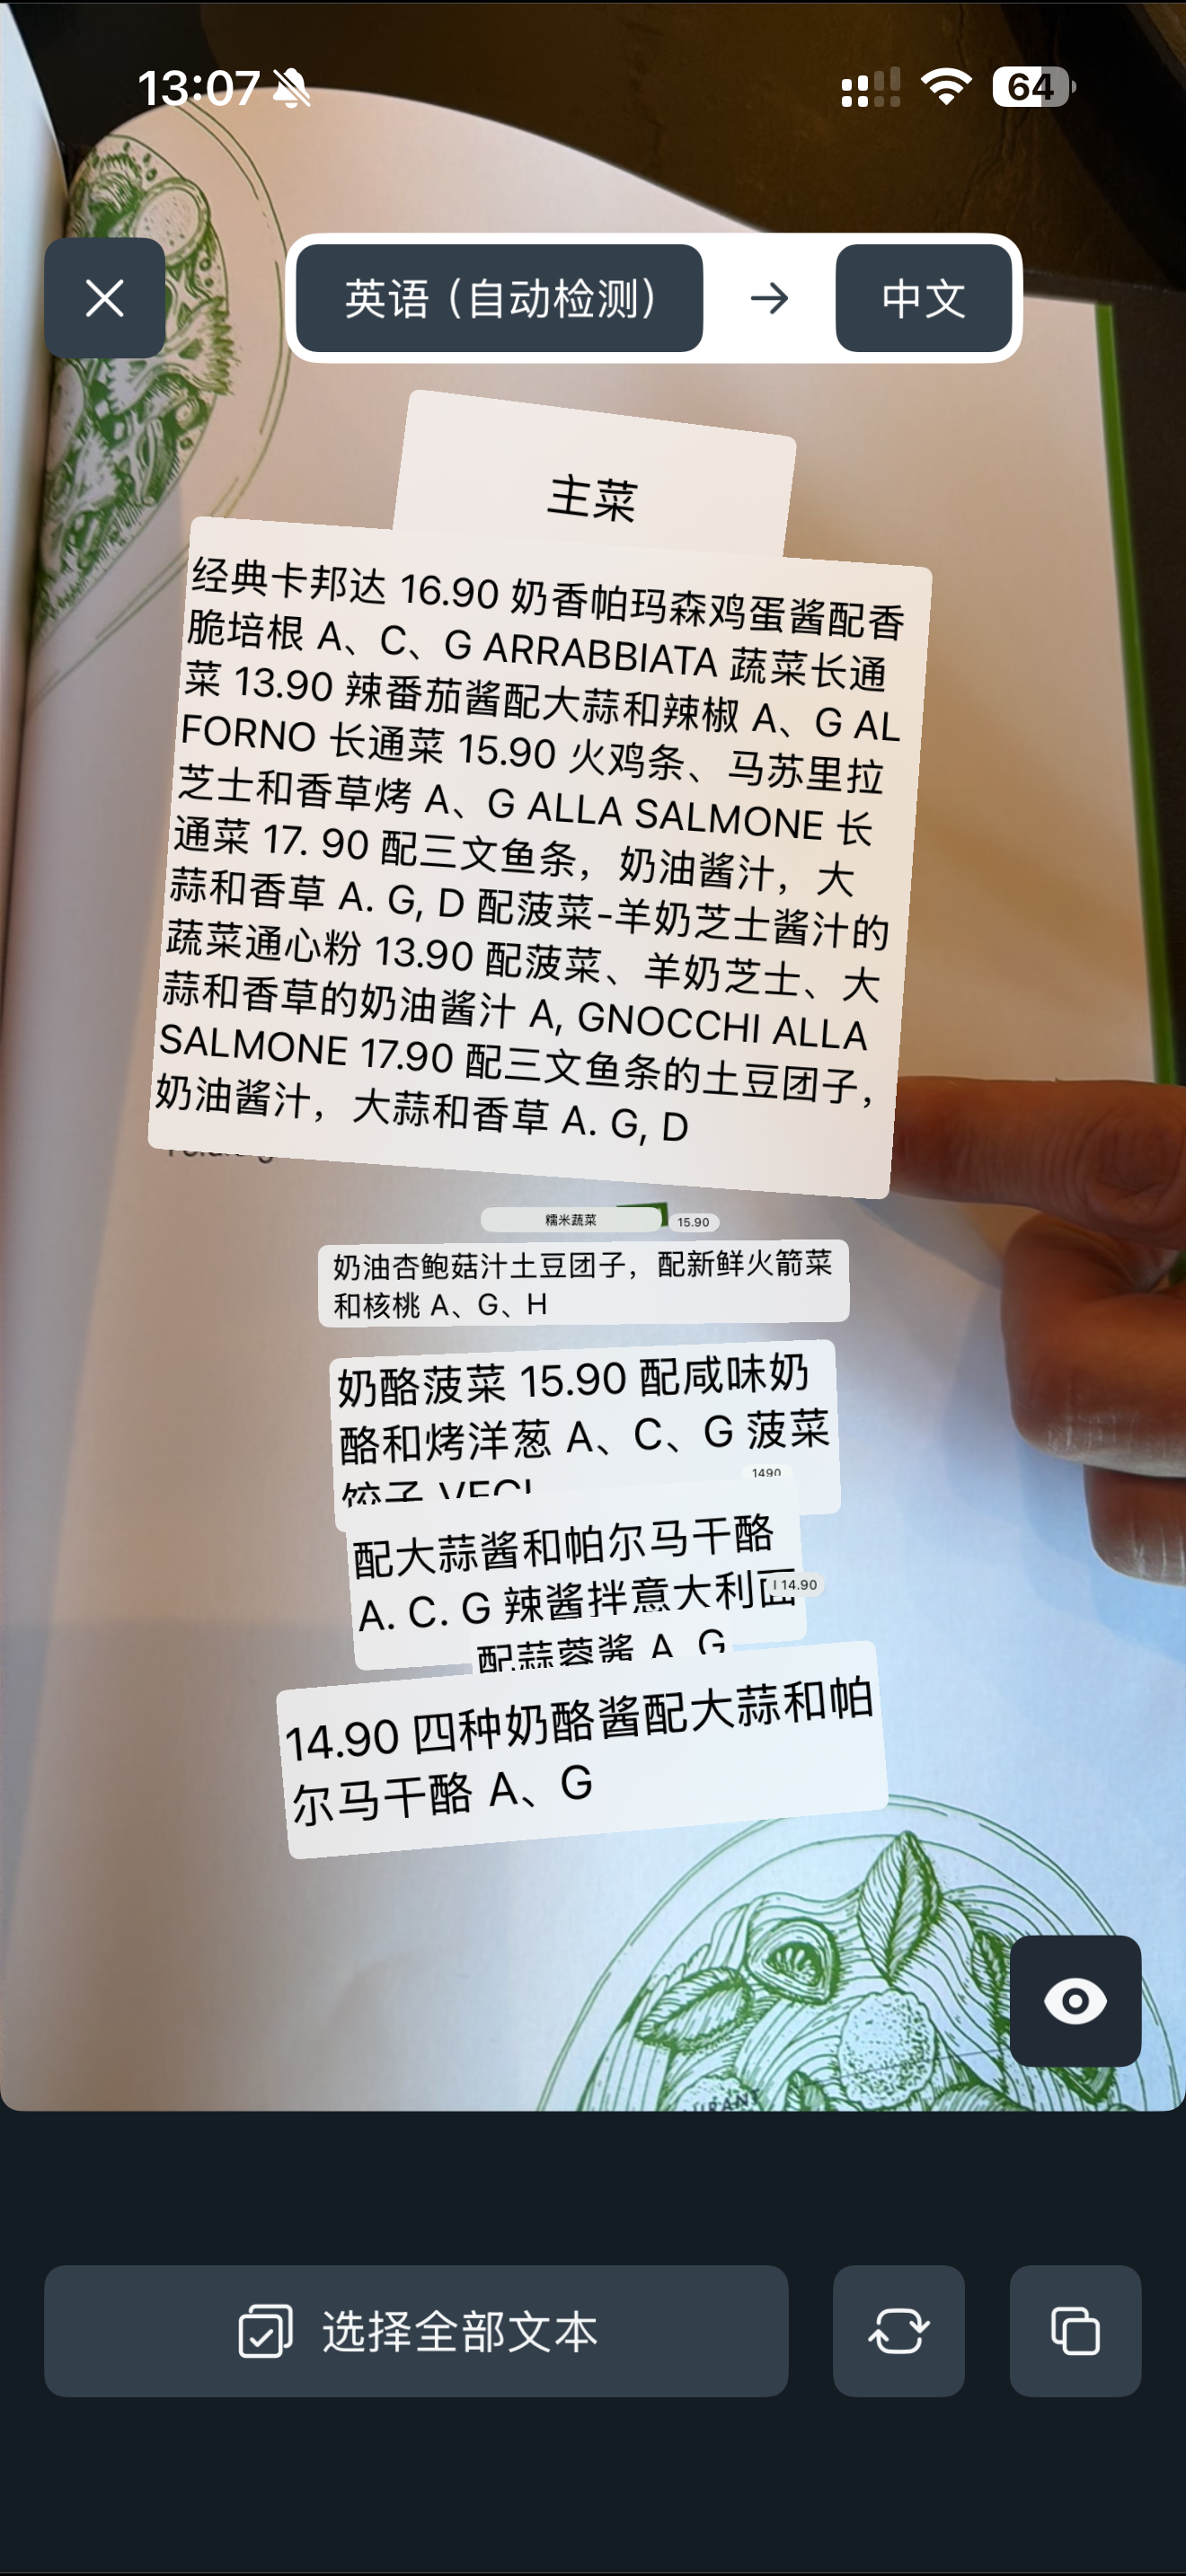 13:07
64
英语（自动检测） → 中文
主菜
经典卡邦达 16.90 奶香帕玛森鸡蛋酱配香
脆培根 A、C、G ARRABBIATA 蔬菜长通
菜 13.90 辣番茄酱配大蒜和辣椒 A、G AL
FORNO 长通菜 15.90 火鸡条、马苏里拉
芝士和香草烤 A、G ALLA SALMONE 长
通菜 17. 90 配三文鱼条，奶油酱汁，大
蒜和香草 A. G, D 配菠菜-羊奶芝士酱汁的
蔬菜通心粉 13.90 配菠菜、羊奶芝士、大
蒜和香草的奶油酱汁 A, GNOCCHI ALLA
SALMONE 17.90 配三文鱼条的土豆团子，
奶油酱汁，大蒜和香草 A. G, D
糯米蔬菜 15.90
奶油杏鲍菇汁土豆团子，配新鲜火箭菜
和核桃 A、G、H
奶酪菠菜 15.90 配咸味奶
酪和烤洋葱 A、C、G 菠菜
饺子 VEGI
1490
配大蒜酱和帕尔马干酪
A. C. G 辣酱拌意大利面
I 14.90
配蒜蓉酱 A G
14.90 四种奶酪酱配大蒜和帕
尔马干酪 A、G
选择全部文本